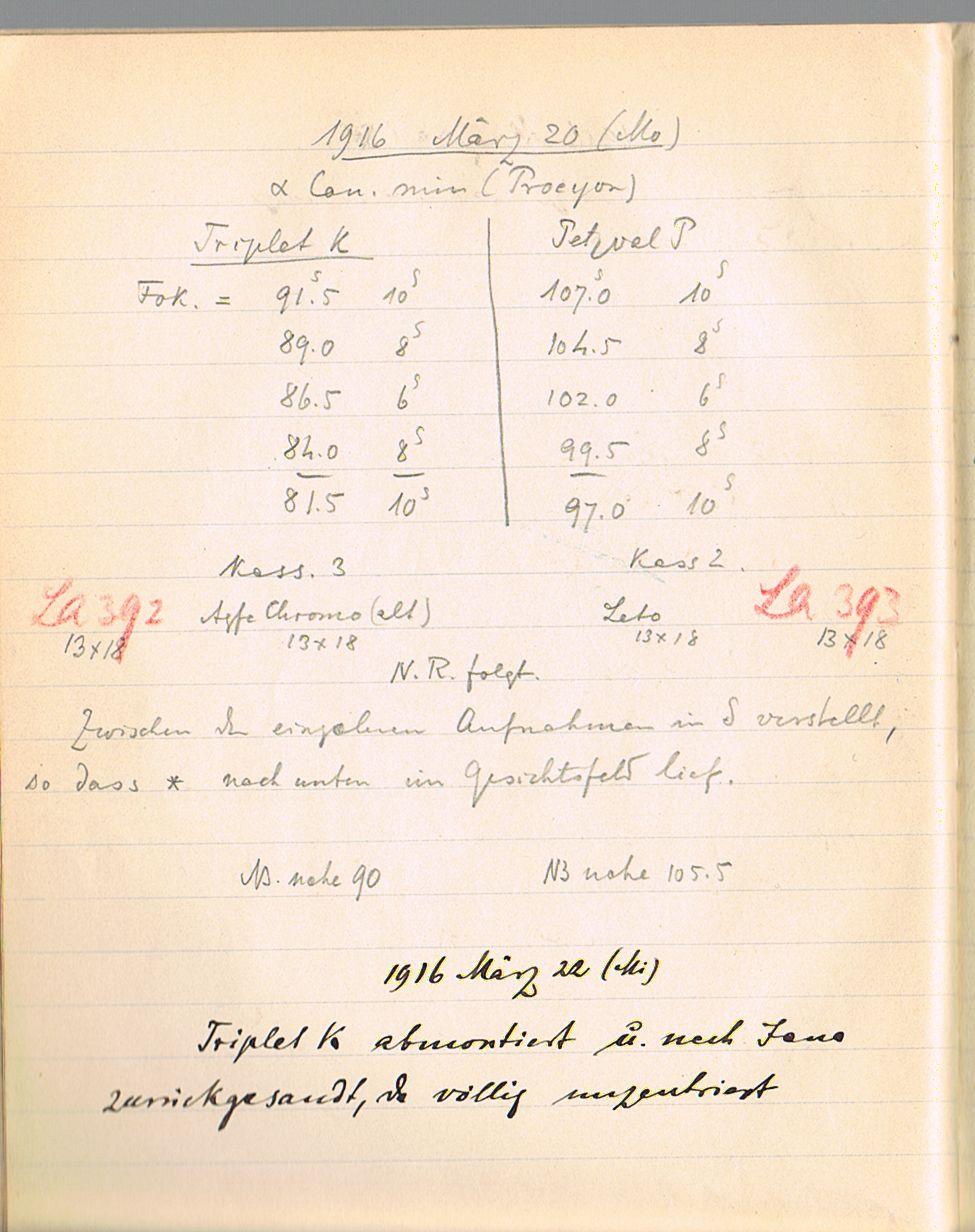 1916 März 20 (Mo)
α Can. min (Procyon)
Triplet K Petzval P
Fok. = 91.5 10ˢ 107.0 10ˢ
89.0 8ˢ 104.5 8ˢ
86.5 6ˢ 102.0 6ˢ
84.0 8ˢ 99.5 8ˢ
81.5 10ˢ 97.0 10ˢ
Kass. 3 Kass 2.
La 392 Agfa Chromo (alt) Leto La 393
13x18 13x18 13x18 13x18
N. R. folgt.
Zwischen den einzelnen Aufnahmen in δ verstellt,
so dass * nach unten im Gesichtsfeld lief.
NB. nahe 90 NB nahe 105.5
1916 März 22 (Mi)
Triplet K abmontiert u. nach Jena
zurückgesandt, da völlig unzentriert